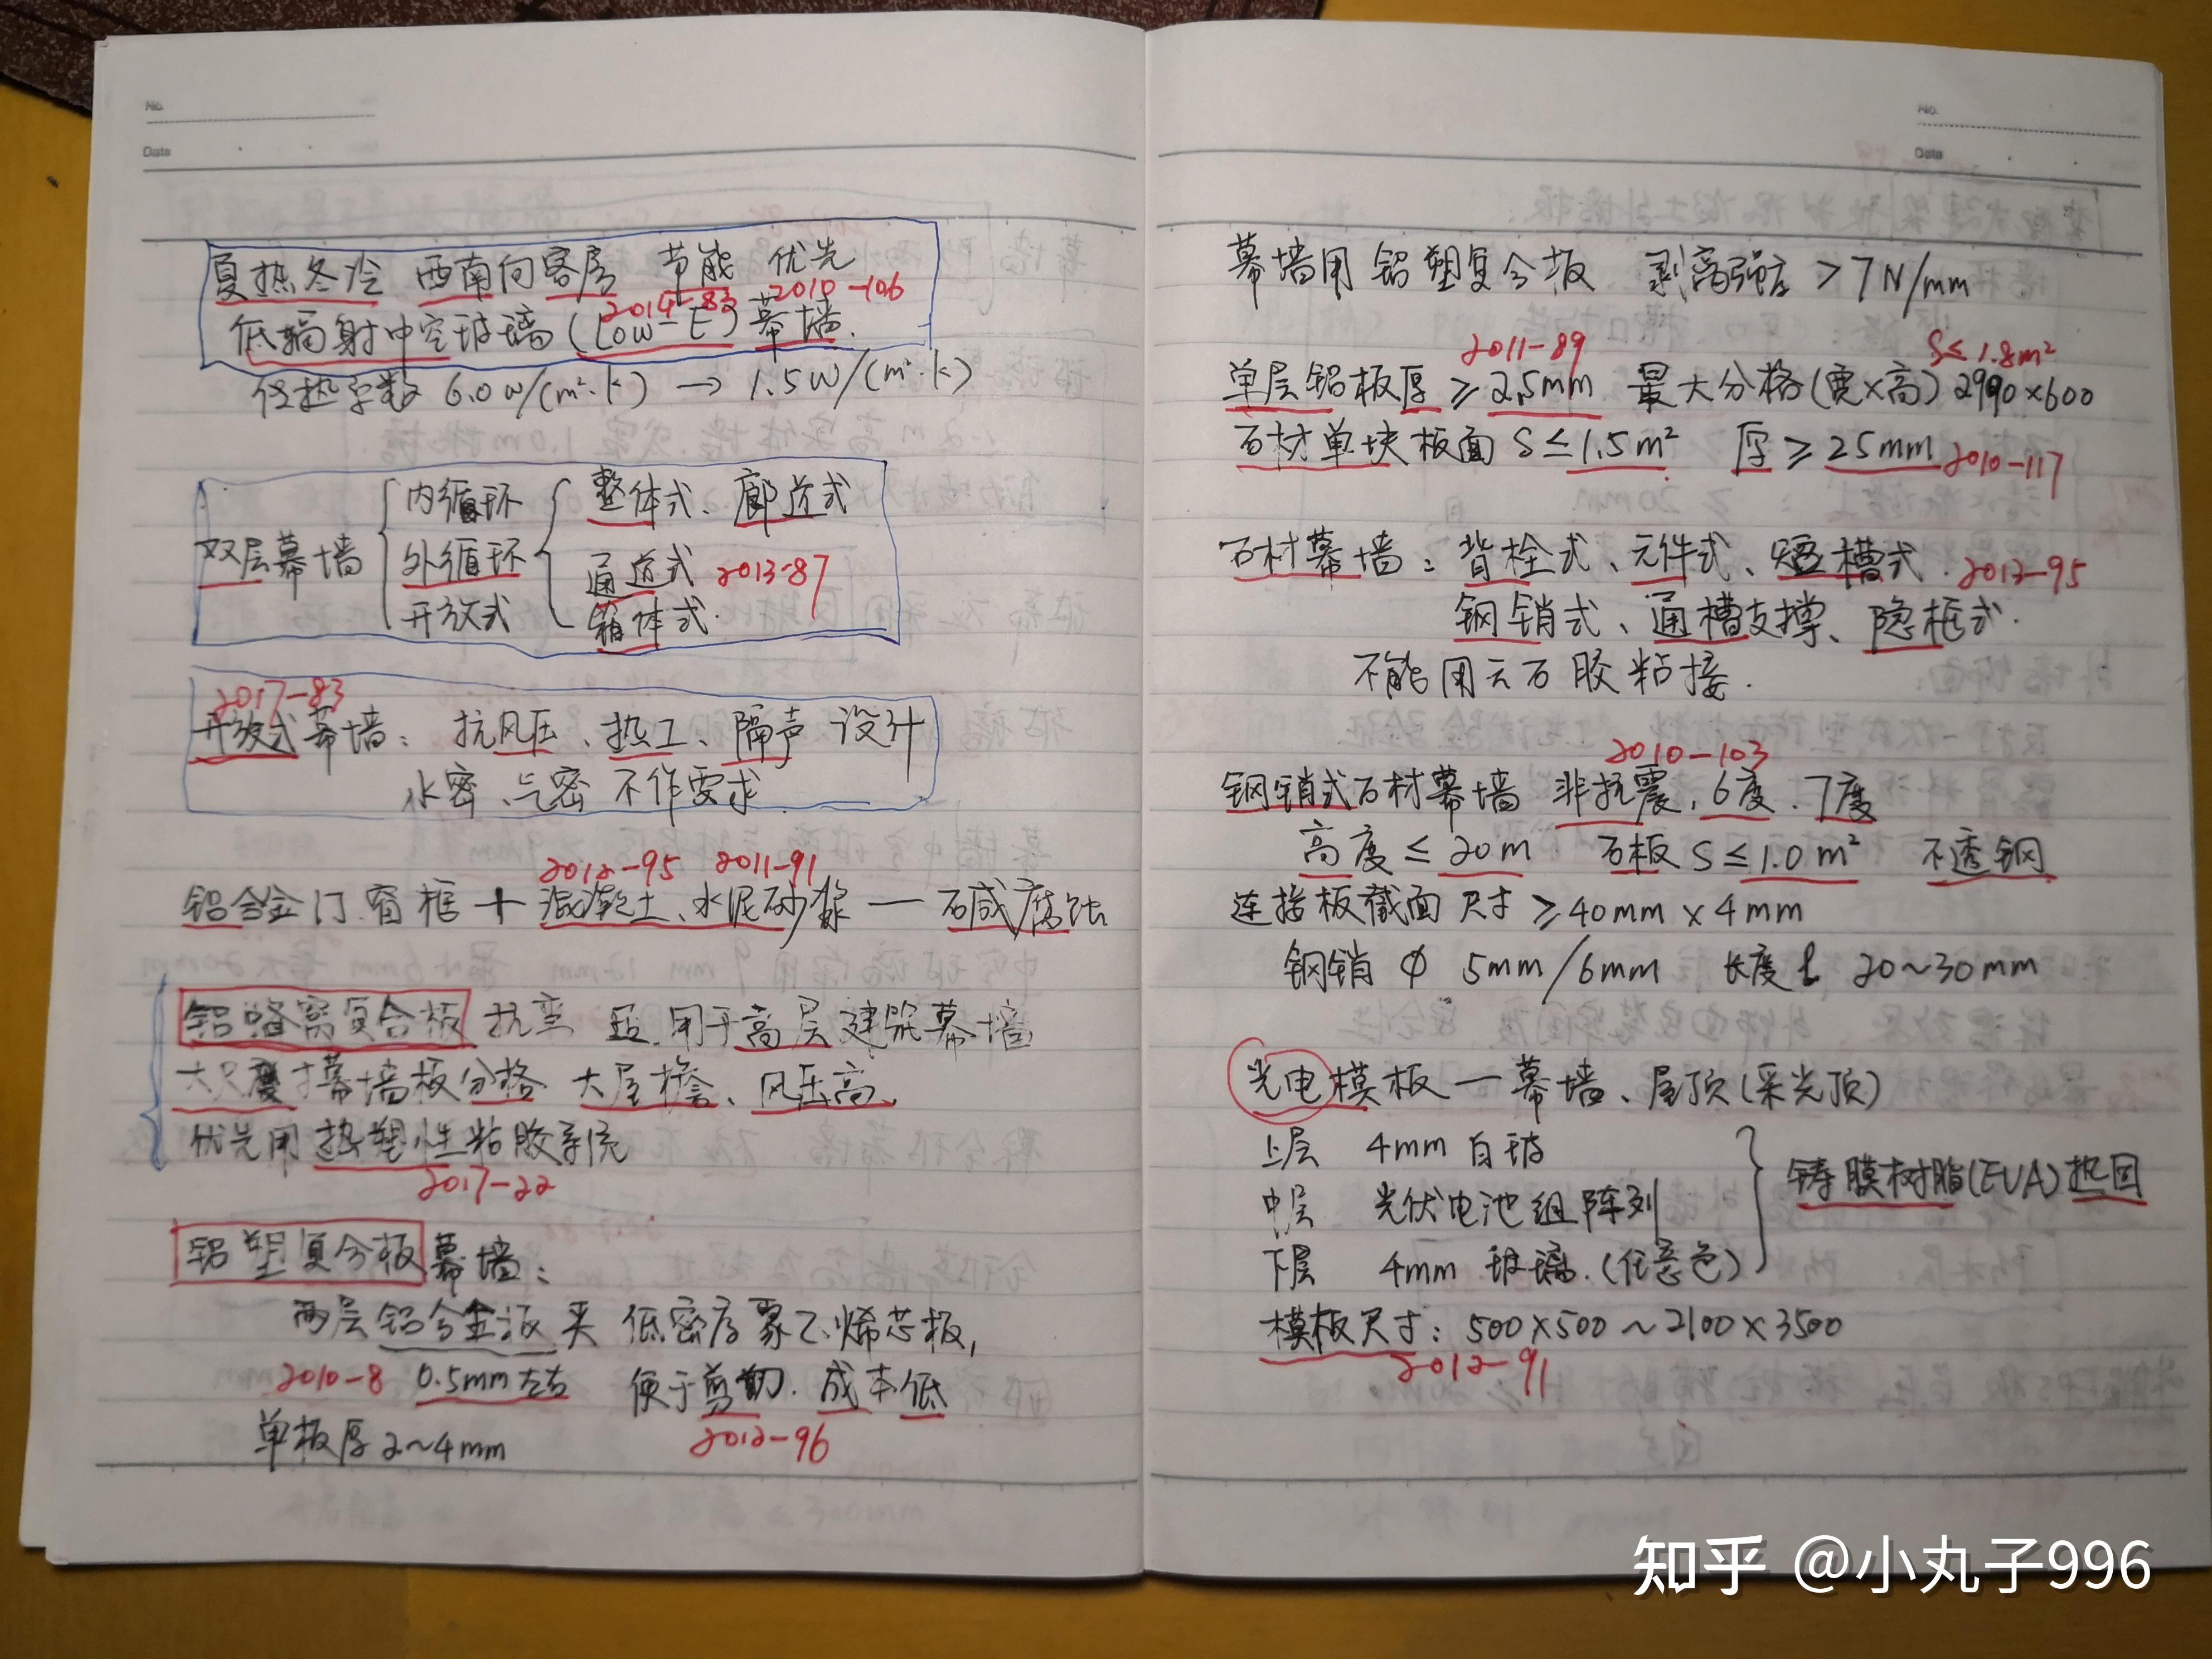 No.
Date
夏热冬冷 西南向客房 节能 优先
2014-83 2010-106
低辐射中空玻璃(Low-E)幕墙.
传热系数 6.0W/(m²·k) → 1.5W/(m²·k)
双层幕墙
内循环
外循环
开放式
整体式、廊道式
通道式 2013-87
箱体式.
2017-83
开放式幕墙: 抗风压、热工、隔声 设计
水密、气密 不作要求
2012-95 2011-91
铝合金门.窗框 + 混凝土、水泥砂浆 — 碱腐蚀
铝蜂窝复合板 抗弯 适用于高层建筑幕墙
大尺度幕墙板分格 大屋檐、风压高、
优先用热塑性粘胶系统
2017-22
铝塑复合板幕墙:
两层铝合金板夹 低密度聚乙烯芯板,
2010-8 0.5mm左右 便于剪切.成本低
2012-96
单板厚2~4mm
No.
Date
幕墙用铝塑复合板 剥离强度 >7N/mm
2011-89 S≤1.8m²
单层铝板厚≥2.5mm 最大分格(宽×高)2990×600
石材单块板面 S≤1.5m² 厚≥25mm 2010-117
石材幕墙: 背栓式、元件式、短槽式. 2012-95
钢销式、通槽支撑、隐框式.
不能用云石胶粘接.
2010-103
钢销式石材幕墙 非抗震,6度.7度
高度≤20m 石板 S≤1.0m² 不透钢
连接板截面尺寸≥40mm×4mm
钢销 φ 5mm/6mm 长度 20~30mm
光电模板—幕墙、屋顶(采光顶)
上层 4mm 白玻
中层 光伏电池组阵列
下层 4mm 玻璃.(任意色)
铸膜树脂(EVA)热固
模板尺寸: 500×500~2100×3500
2012-91
知乎 @小丸子996